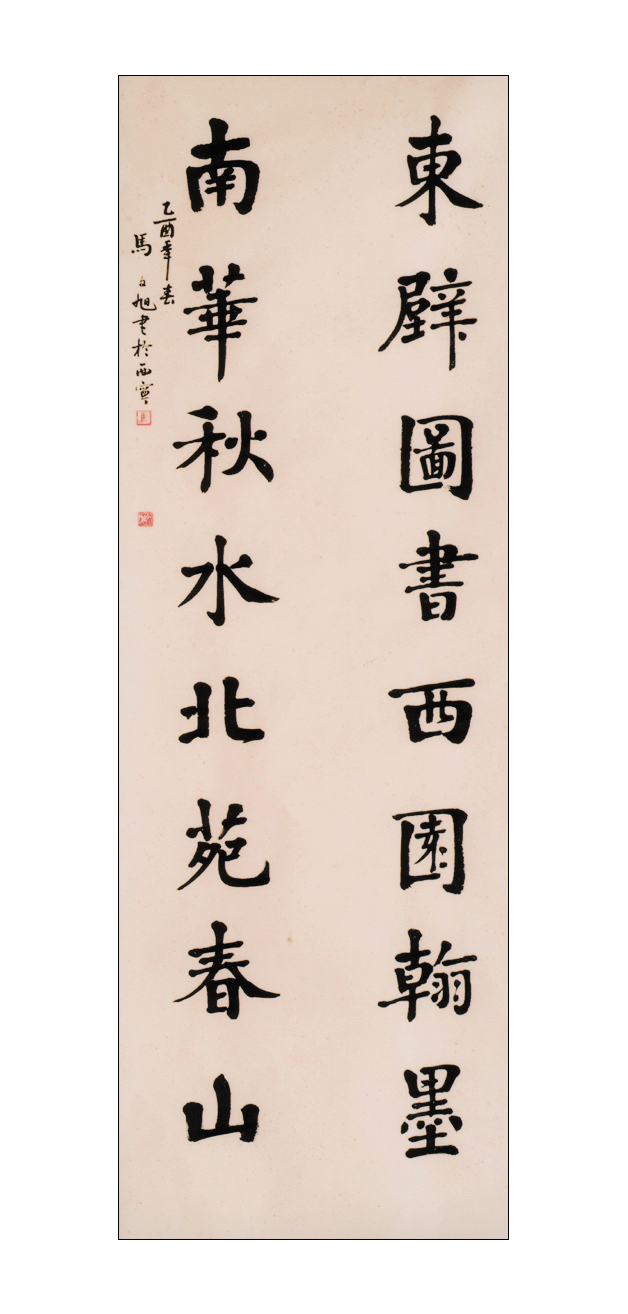 東壁圖書西園翰墨
南華秋水北苑春山
乙酉年春
馬白旭書於西寧